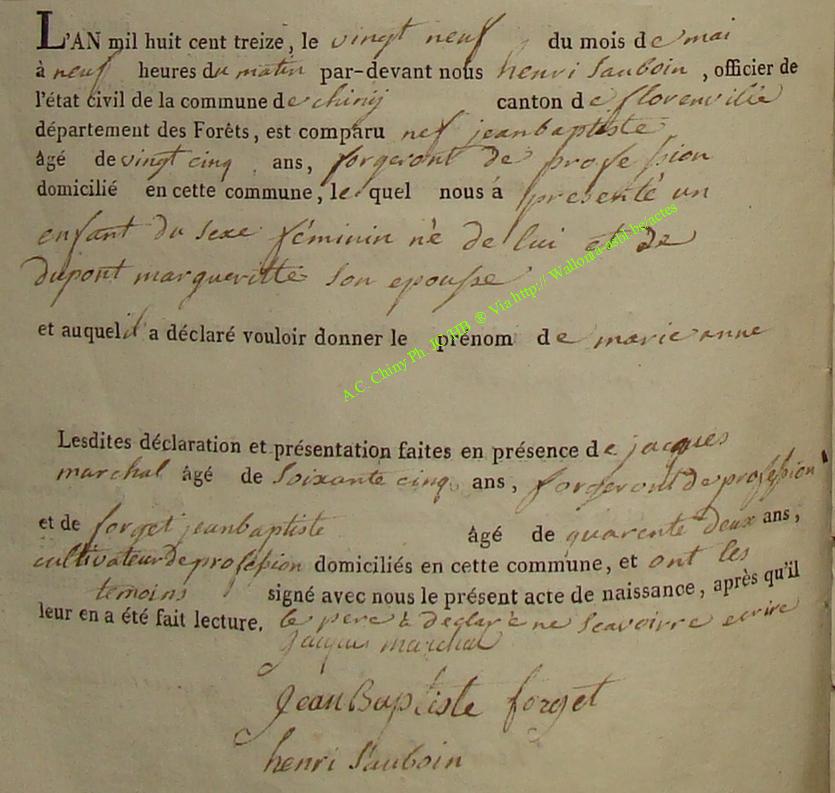 L'AN mil huit cent treize, le vingt neuf du mois de mai
à neuf heures du matin par-devant nous henri Sauboin, officier de
l'état civil de la commune de chinij canton de florenville
département des Forêts, est comparu nef jeanbaptiste
âgé de vingt cinq ans, forgeront de profession
domicilié en cette commune, le quel nous à presenté un
enfant du sexe féminin né de lui et de
dupont margueritte son epouse
et auquel il a déclaré vouloir donner le prénom de marie anne
Lesdites déclaration et présentation faites en présence de jacques
marchal âgé de soixante cinq ans, forgeront de profession
et de forget jeanbaptiste âgé de quarente deux ans,
cultivateur de profession domiciliés en cette commune, et ont les
temoins signé avec nous le présent acte de naissance, après qu'il
leur en a été fait lecture. le pere à déclaré ne scavoirre ecrire
jacques marchal
Jean Baptiste forget
henri Sauboin
A.C. Chiny Ph. ® Via http:// Wallonia-asbl.be/actes